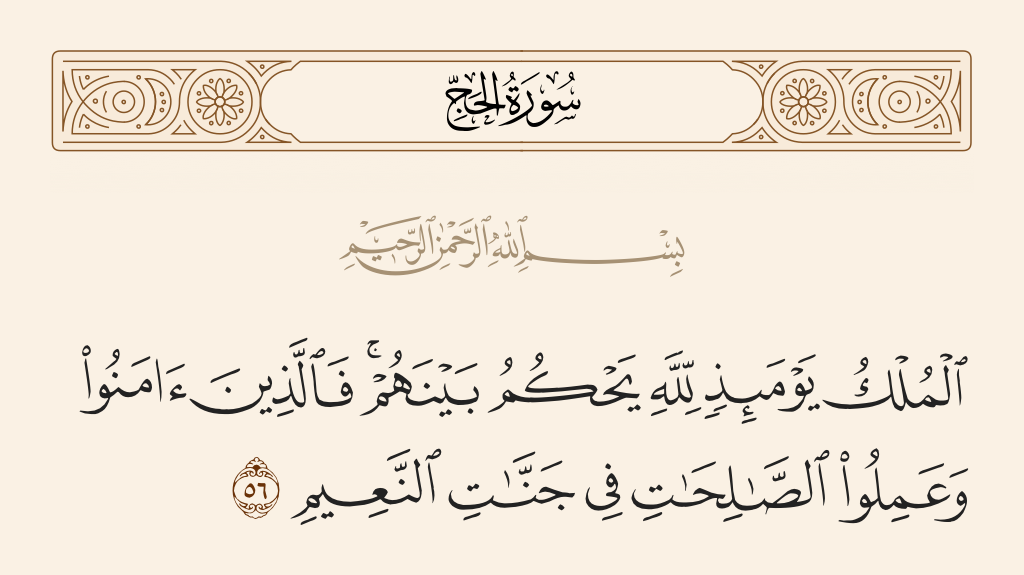 سُورَةُ الحَجِّ
بِسْمِ ٱللَّهِ ٱلرَّحْمَٰنِ ٱلرَّحِيمِ
ٱلْمُلْكُ يَوْمَئِذٍ لِّلَّهِ يَحْكُمُ بَيْنَهُمْ ۚ فَٱلَّذِينَ ءَامَنُوا۟
وَعَمِلُوا۟ ٱلصَّٰلِحَٰتِ فِى جَنَّٰتِ ٱلنَّعِيمِ ٥٦